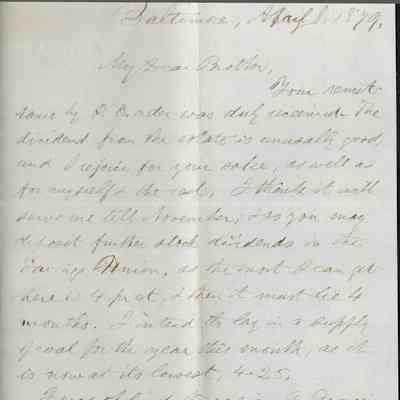 Baltimore, April 8. 1879.
My Dear Brother,
Your remit-
tance by P. Order was duly received. The
dividend from the estate is unusually good,
and I rejoice for your sake, as well as
for myself & the rest. I think it will
serve me till November; & so you may
deposit further stock dividends in the
Savings Union, as the most I can get
here is 4 pr ct, & then it must lie 4
months. I intend to lay in a supply
of coal for the year this month, as it
is now at its lowest, 4.25.